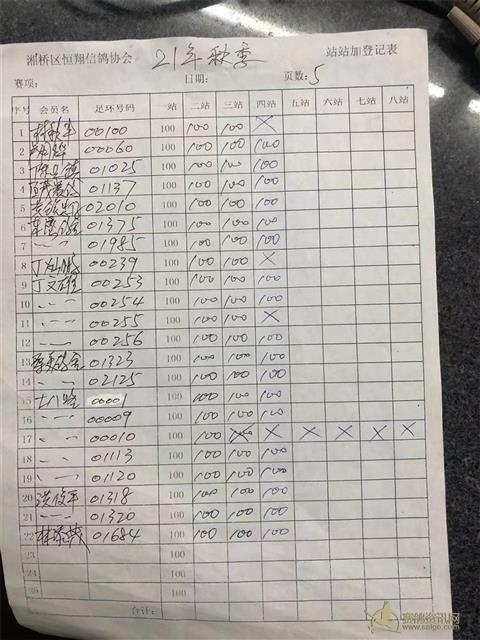 湘桥区恒翔信鸽协会 21年秋季 站站加登记表
赛项: 日期: 页数:5
序号 会员名 足环号码 一站 二站 三站 四站 五站 六站 七站 八站
1 00100 100 100 100 X
2 00060 100 100 100 100
3 01025 100 100 100 100
4 01137 100 100 100 100
5 02010 100 100 100 100
6 01375 100 100 100 100
7 01985 100 100 100 100
8 00239 100 100 100 X
9 丁文雄 00253 100 100 100 100
10 00254 100 100 100 100
11 00255 100 100 100 X
12 00256 100 100 100 100
13 01323 100 100 100 100
14 02125 100 100 100 100
15 00001 100 100 100 100
16 00009 100 100 100 100
17 00010 100 100 X X X X X X
18 01113 100 100 100 100
19 01120 100 100 100 100
20 01318 100 100 100 100
21 01320 100 100 100 100
22 01684 100 100 100 100
23 100
24 100
25 100
合计:
赛鸽资讯网
www.saige.com